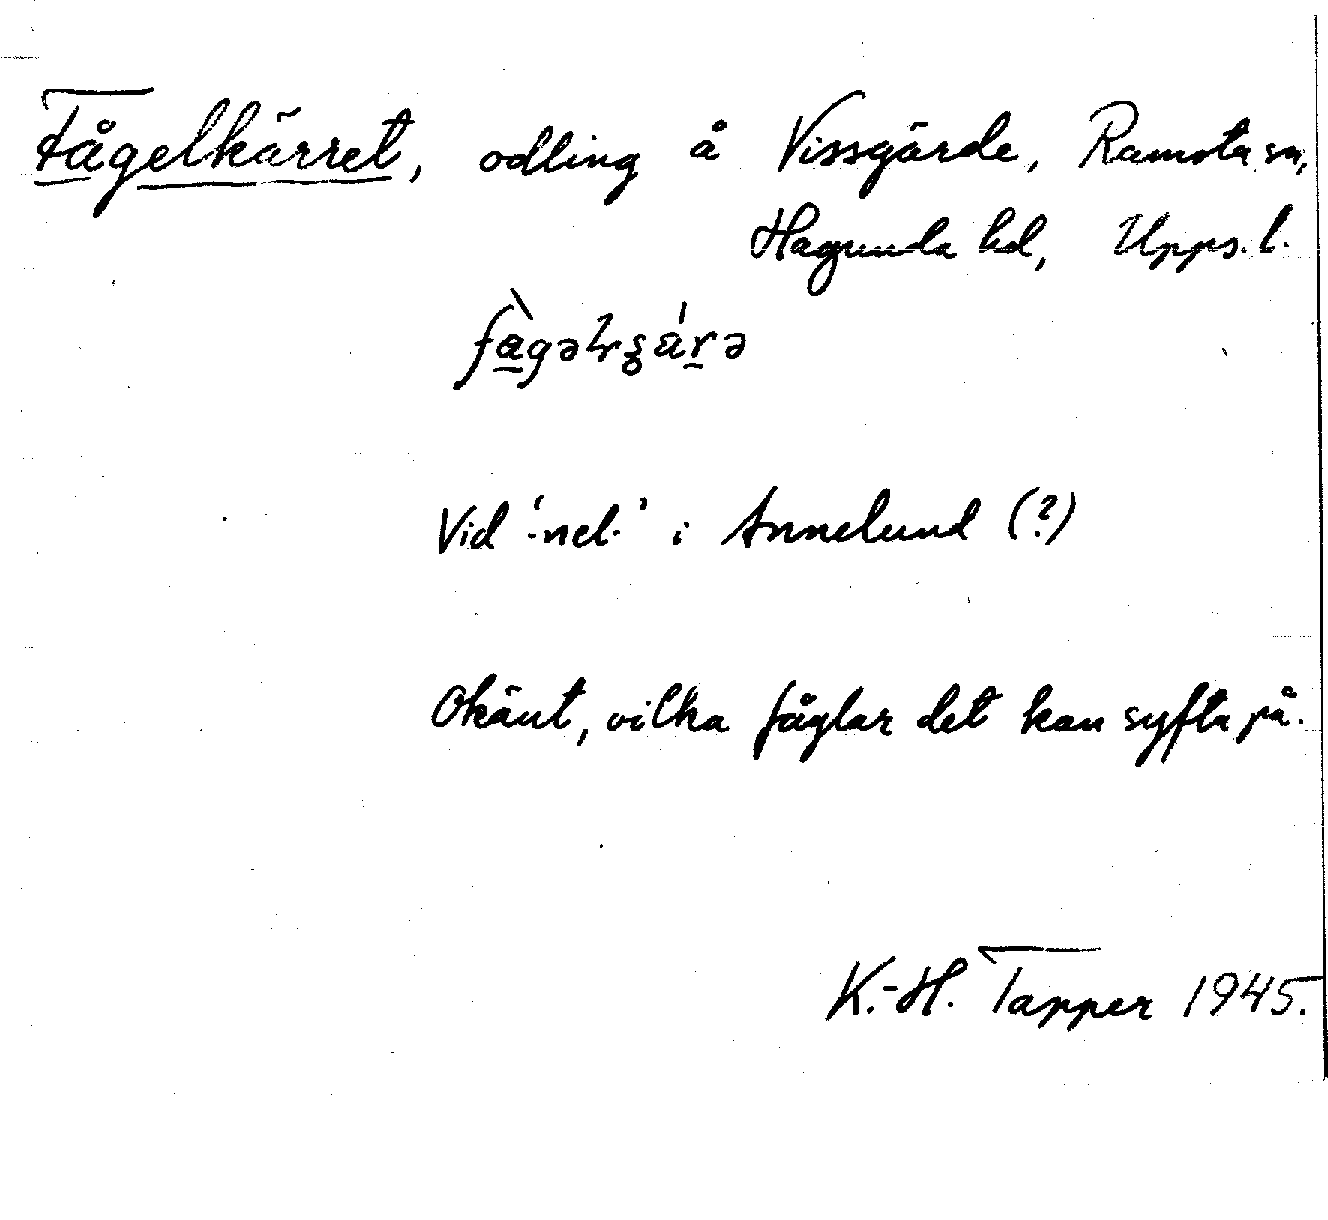 Fågelkärret, odling å Vissgärde, Ramsta sn,
Hagunda hd, Upps. l.
Vid '-nel-' i Annelund (?)
Okänt, vilka fåglar det kan syfta på.
K.-H. Tapper 1945.